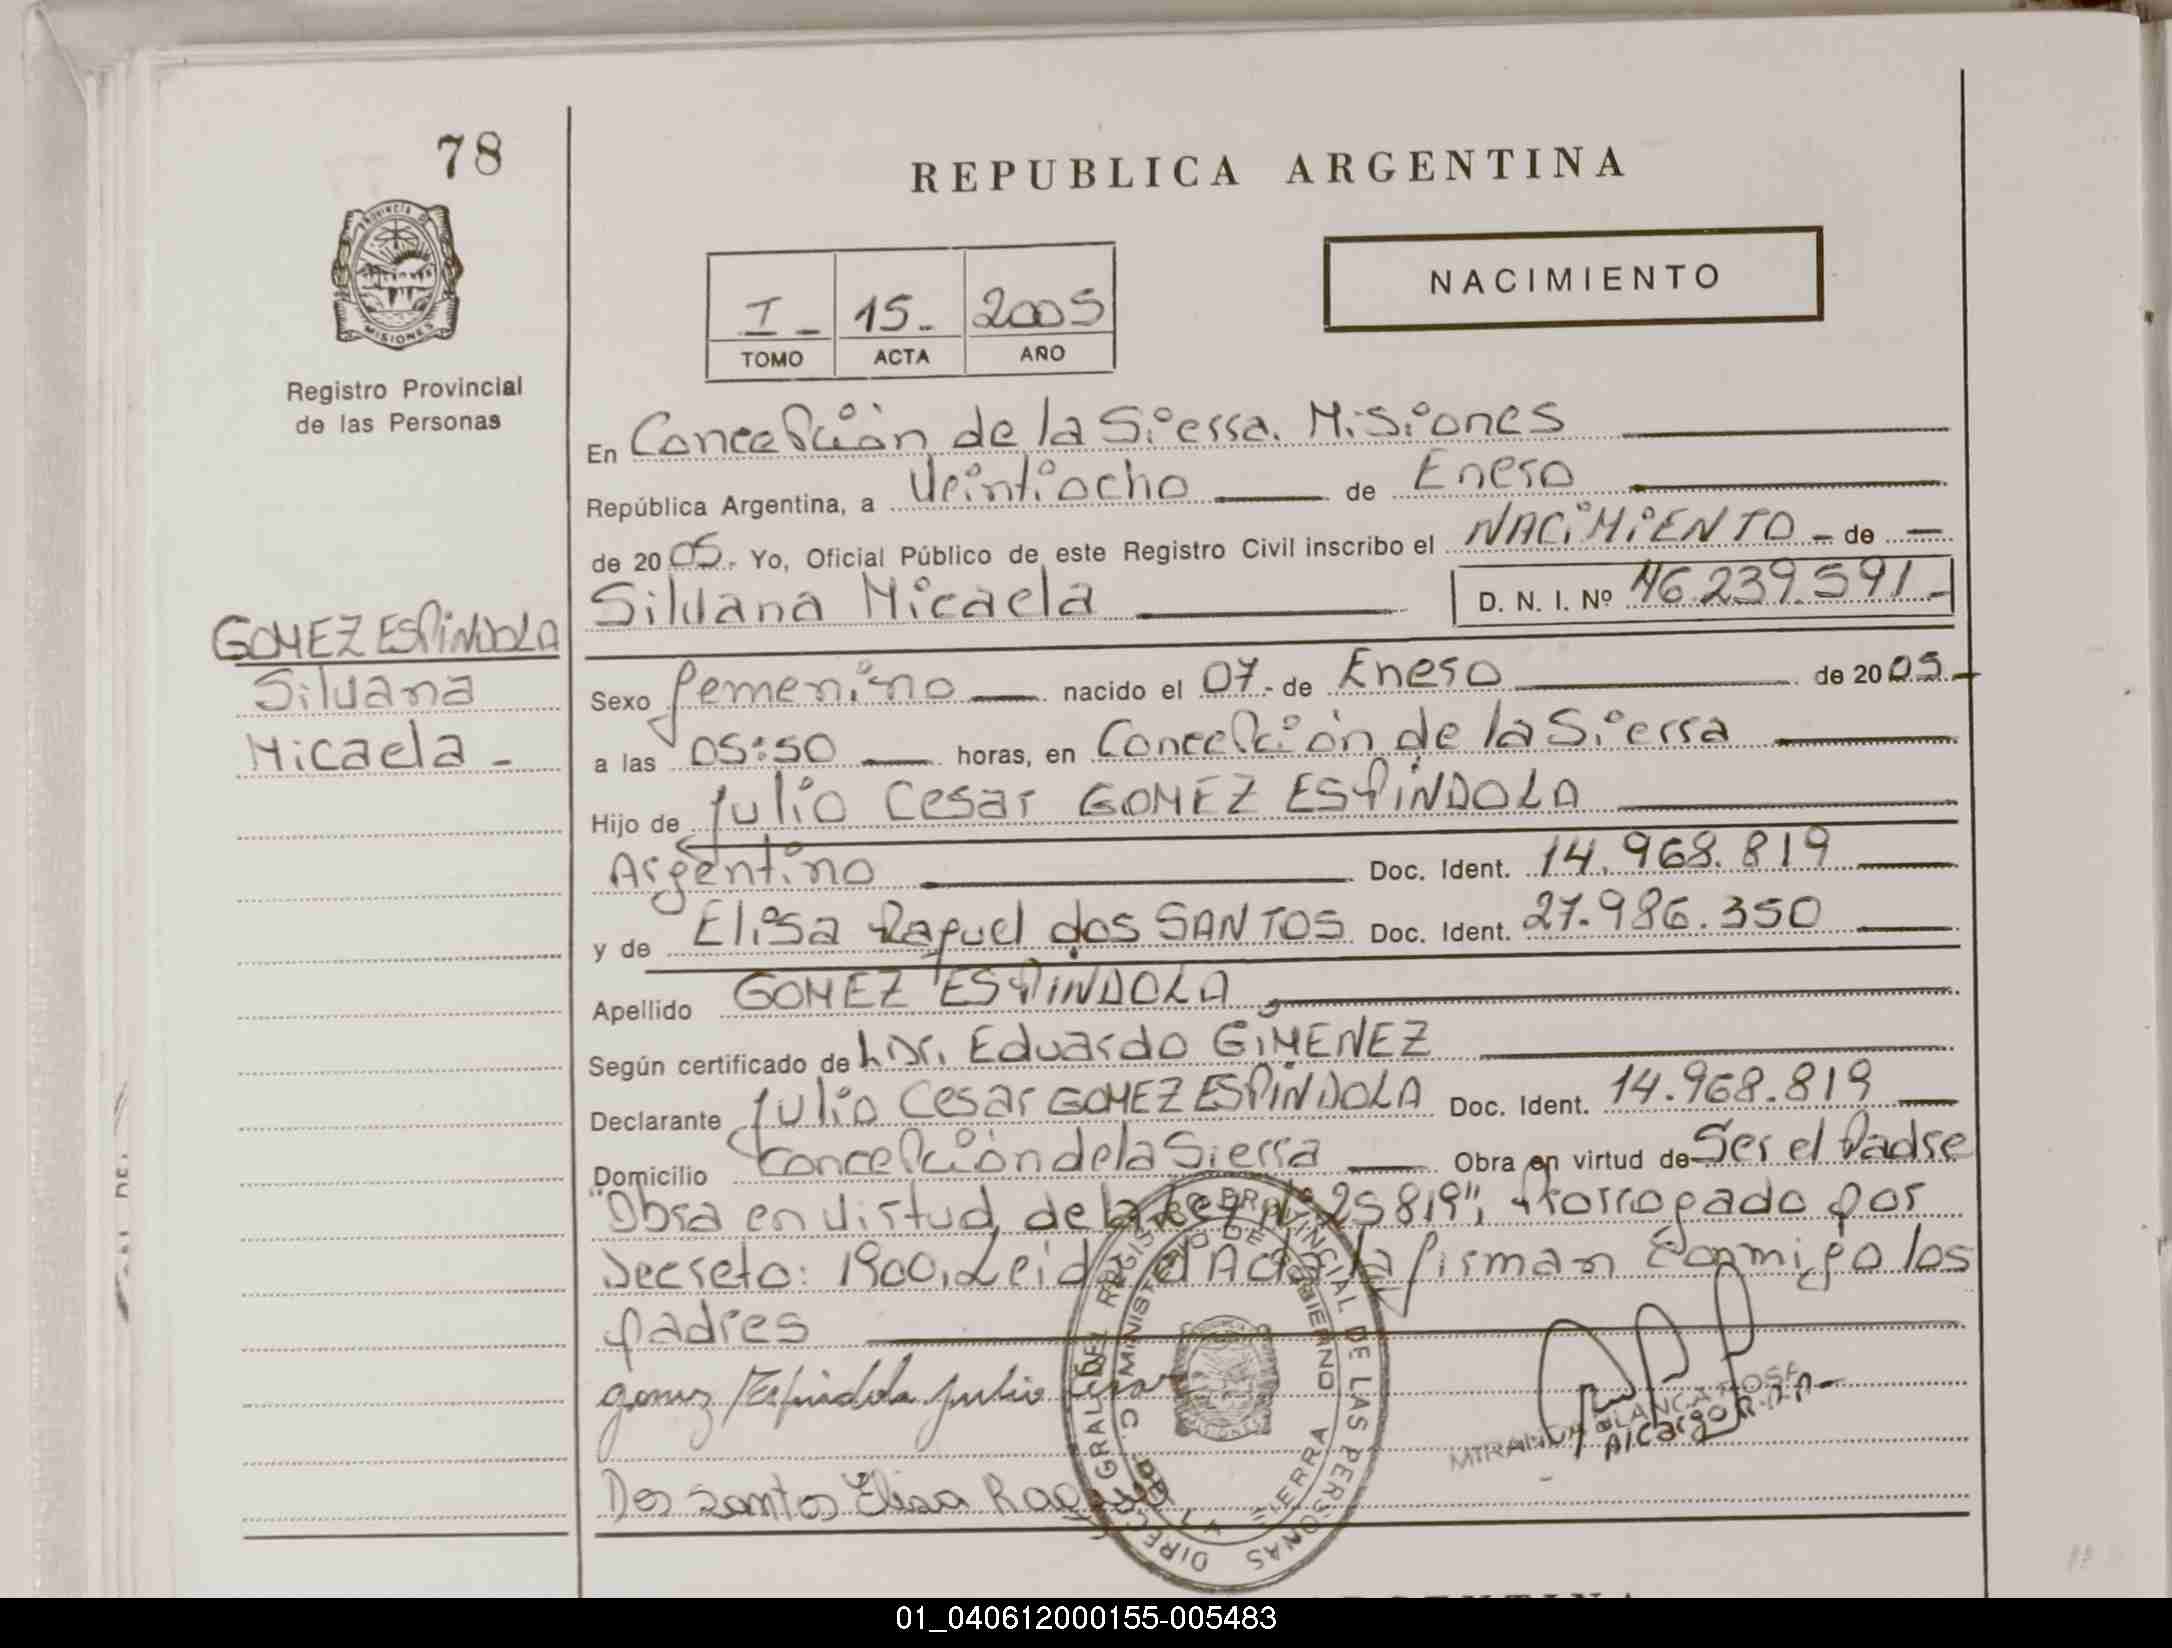 78
PROVINCIA DE
MISIONES
Registro Provincial
de las Personas
REPUBLICA ARGENTINA
NACIMIENTO
I - 15. 2005
TOMO ACTA AÑO
En Concepción de la Sierra. Misiones
República Argentina, a Veintiocho de Enero
de 2005. Yo, Oficial Público de este Registro Civil inscribo el NACIMIENTO - de —
Silvana Micaela D. N. I. Nº 46.239.591-
GOMEZ ESPINDOLA
Silvana
Micaela -
Sexo femenino nacido el 07- de Enero de 2005.-
a las 05:50 horas, en Concepción de la Sierra
Hijo de Julio Cesar GOMEZ ESPINDOLA
Argentino Doc. Ident. 14.968.819
y de Elisa Raquel dos SANTOS Doc. Ident. 27.986.350
Apellido GOMEZ ESPINDOLA
Según certificado de Dr. Eduardo GIMENEZ
Declarante Julio Cesar GOMEZ ESPINDOLA Doc. Ident. 14.968.819
Domicilio Concepción de la Sierra Obra en virtud de Ser el Padre
"Obra en virtud de la Ley Nº 25819", Prorrogado por
Decreto: 1900. Leida el Acta la firman Conmigo los
padres
Gomez Espindola Julio Cesar
MIRANDA BLANCA ROSA
Al cargo R.P.P-
Dos Santos Elisa Raquel
DIREC. GRAL. DEL REGISTRO PROVINCIAL DE LAS PERSONAS
MINISTERIO DE GOBIERNO
C. DE LA SIERRA
01_040612000155-005483